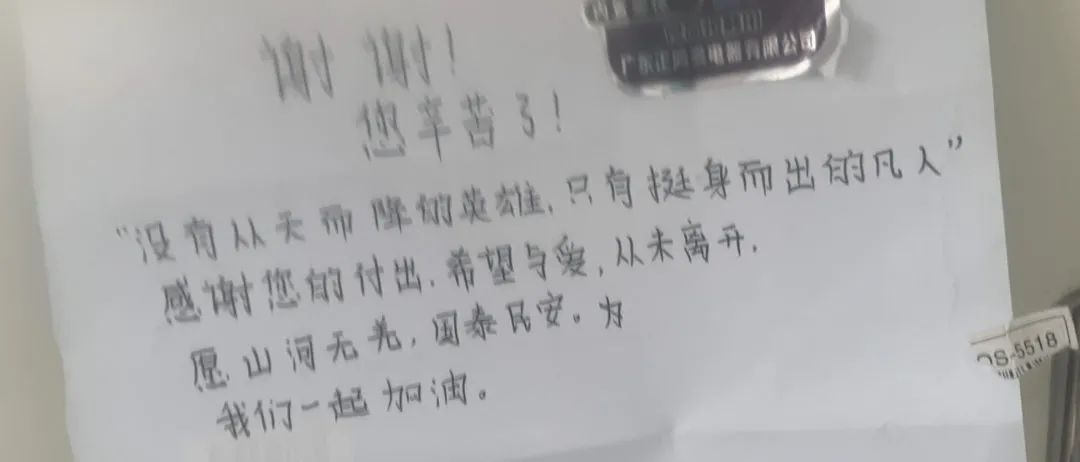 谢谢!
您辛苦了!
"没有从天而降的英雄,只有挺身而出的凡人"
感谢您的付出.希望与爱,从未离开.
愿山河无恙,国泰民安。为
我们一起加油。
电器有限公司
QS-5518